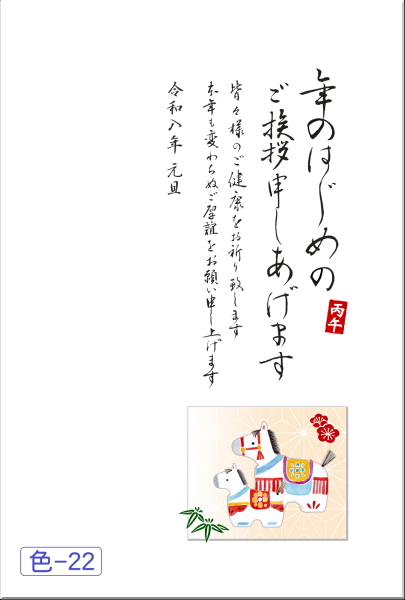 年のはじめの
ご挨拶申しあげます
丙午
皆々様のご健康をお祈り致します
本年も変わらぬご厚誼をお願い申し上げます
令和八年 元旦
色-22